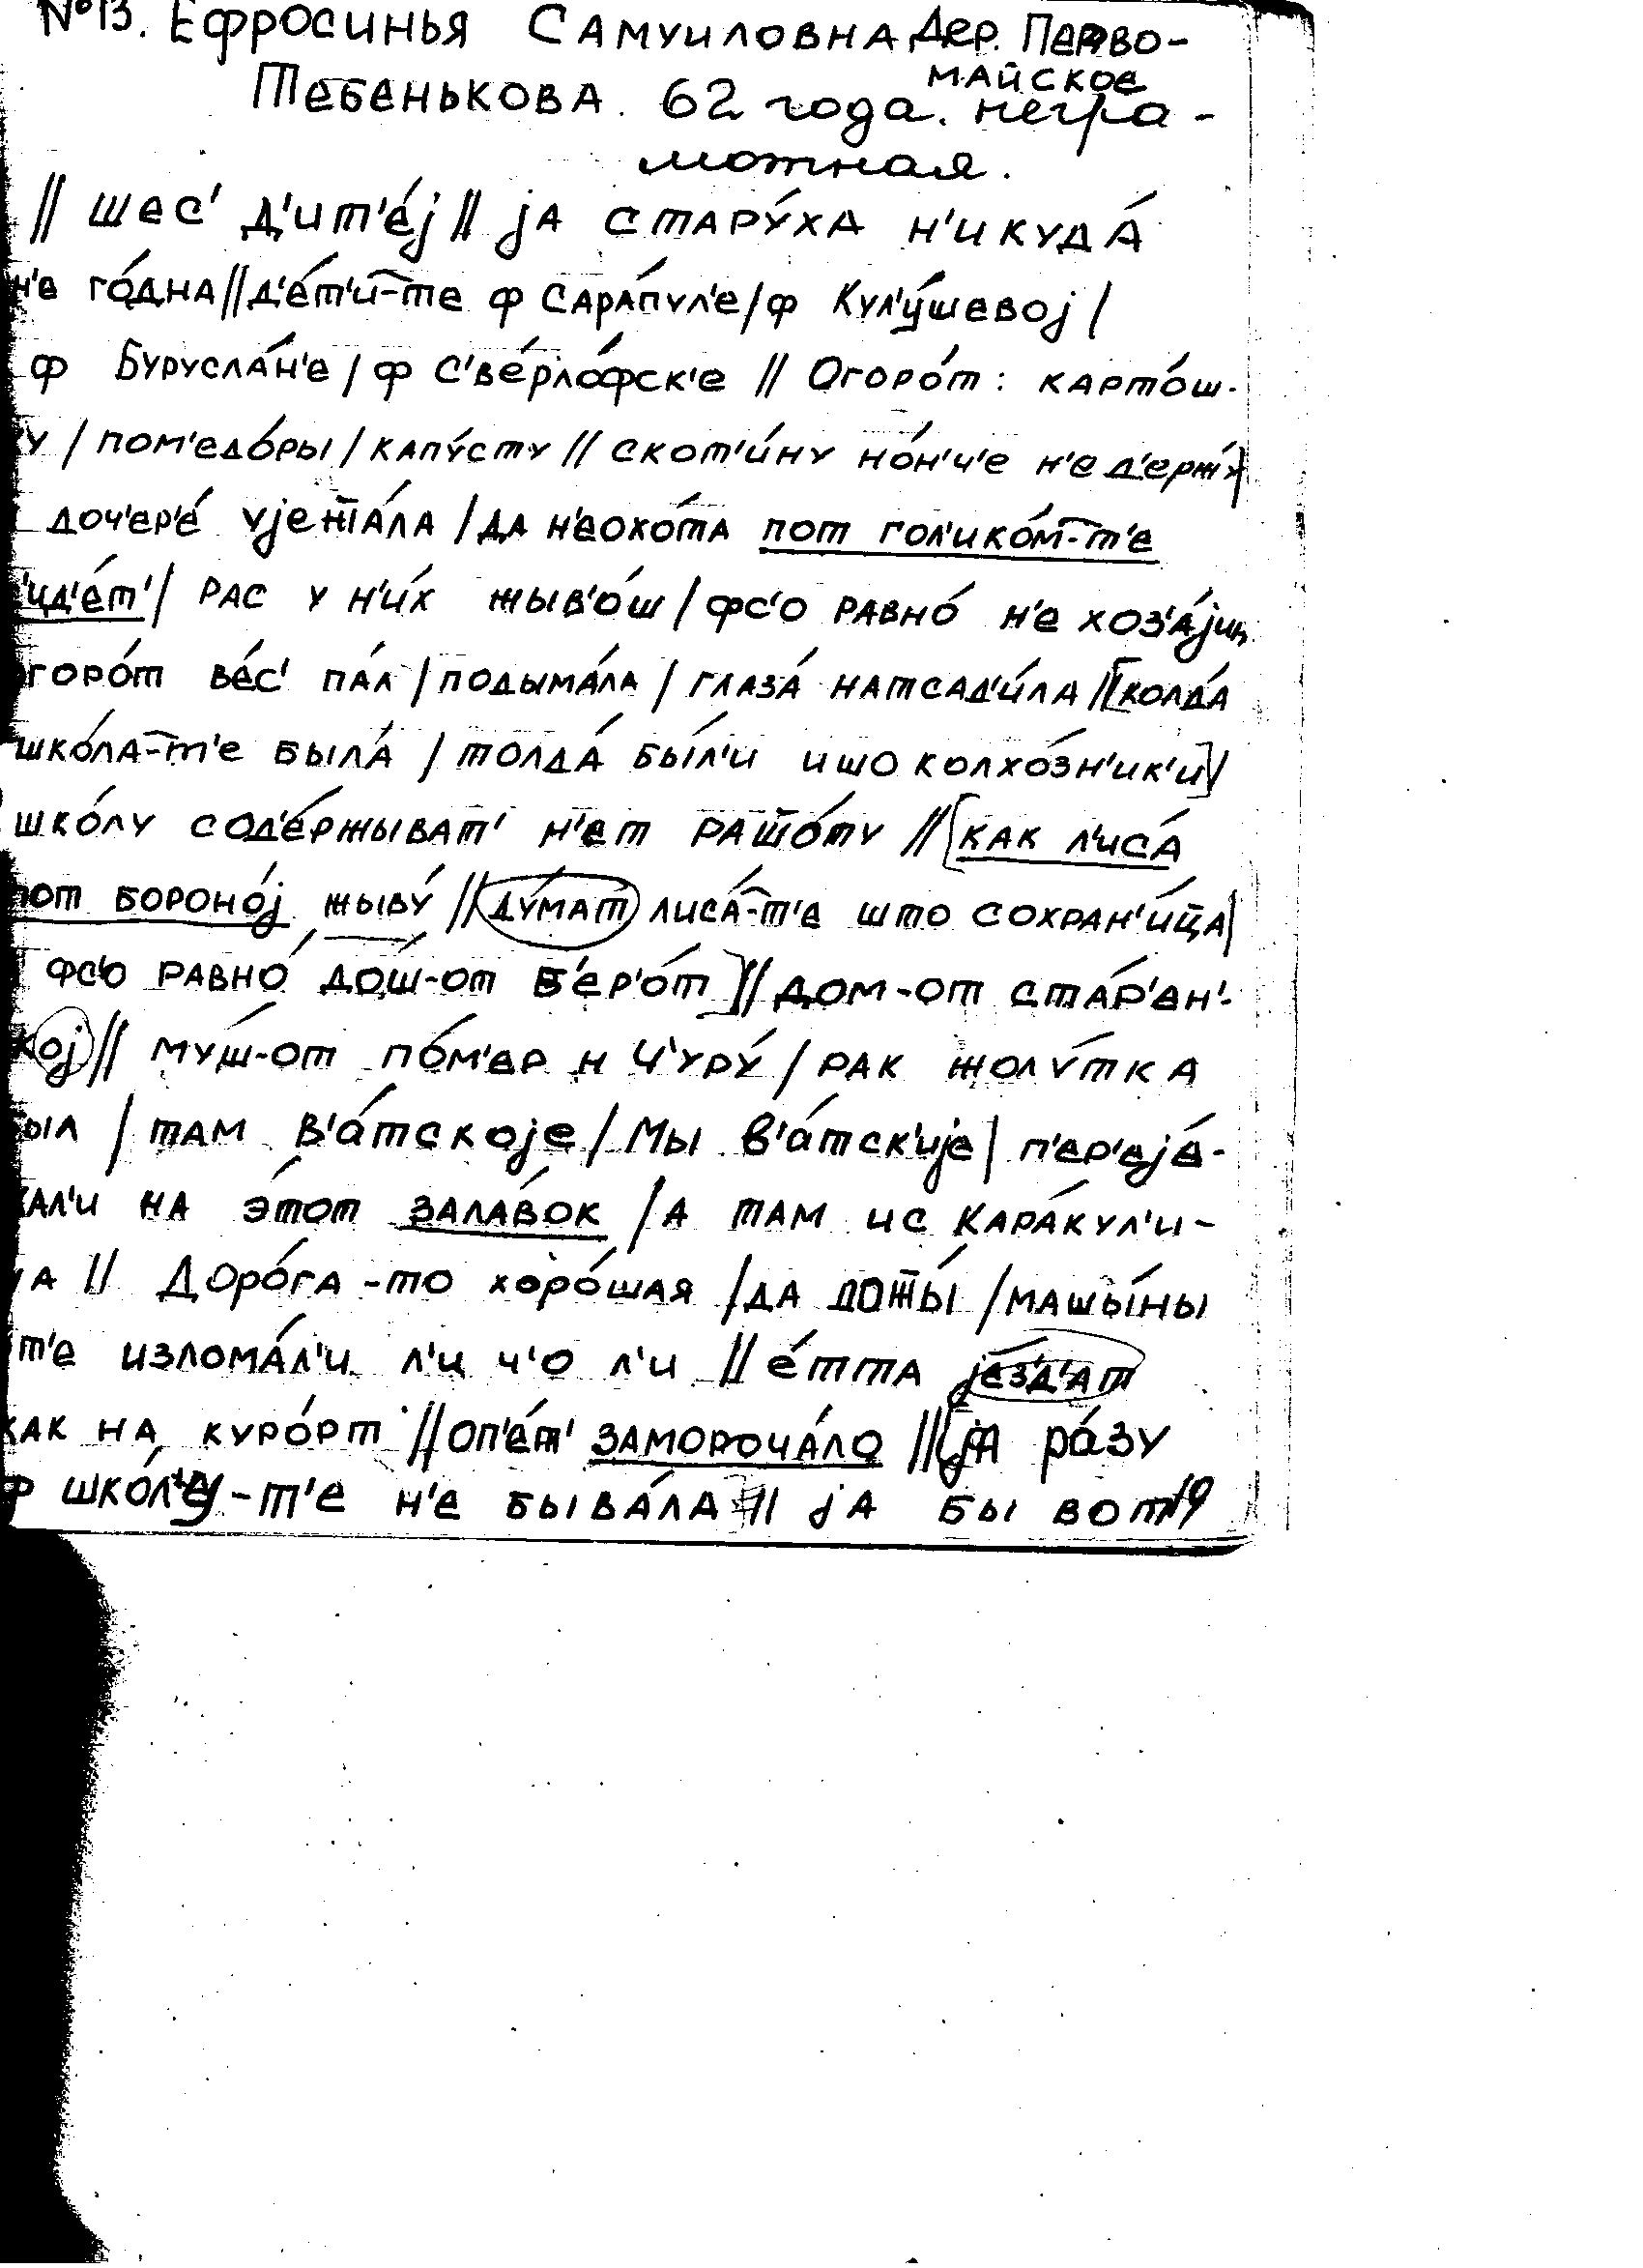 №13. Ефросинья Самуиловна Дер. Перво-
майское
Тебенькова. 62 года. негра-
мотная.
// шес' д'ит'е́j // jа стару́ха н'икуда́
н'е го́дна // д'е́т'и-те ф Сара́пул'е / ф Кул'у́шевоj /
ф Бурусла́н'е / ф С'ве́рло́фск'е // Огоро́т : карто́ш-
у / пом'едо́ры / капу́сту // скот'и́ну но́н'ч'е н'е д'ержу́
доч'ер'е́ уjежжа́ла / да н'еохо́та пот гол'ико́м-т'е
ид'е́т' / рас у н'и́х жыв'о́ш / фс'о равно́ н'е хоз'а́jин
огоро́т ве́с' па́л / подыма́ла / глаза́ натсад'и́ла // [колда́
шко́ла-т'е была́ / толда́ бы́л'и ишо колхо́зн'ик'и] /
шко́лу сод'е́ржыват' н'ет рашо́ту // [как л'иса́
пот бороно́j жыву́ // ду́мат лиса́-т'е што сохран'и́ца /
фс'о равно́ до́ш-от б'ер'о́т] // дом-от ста́р'ен'-
коj // му́ш-от по́м'ер н Ч'уру́ / рак жолу́тка
был / там в'а́тскоjе / Мы в'а́тск'иjе / п'ер'еjе́-
хал'и на э́тот зала́вок / а там ис Кара́кул'и-
на // Доро́га-то хоро́шая / да дожжы́ / машы́ны
т'е излома́л'и л'и ч'о л'и // е́тта jе́зд'ат
как на куро́рт // оп'е́т' заморочáло // [jа ра́зу
ф шко́л'у-т'е н'е быва́ла] // jа бы вот 19